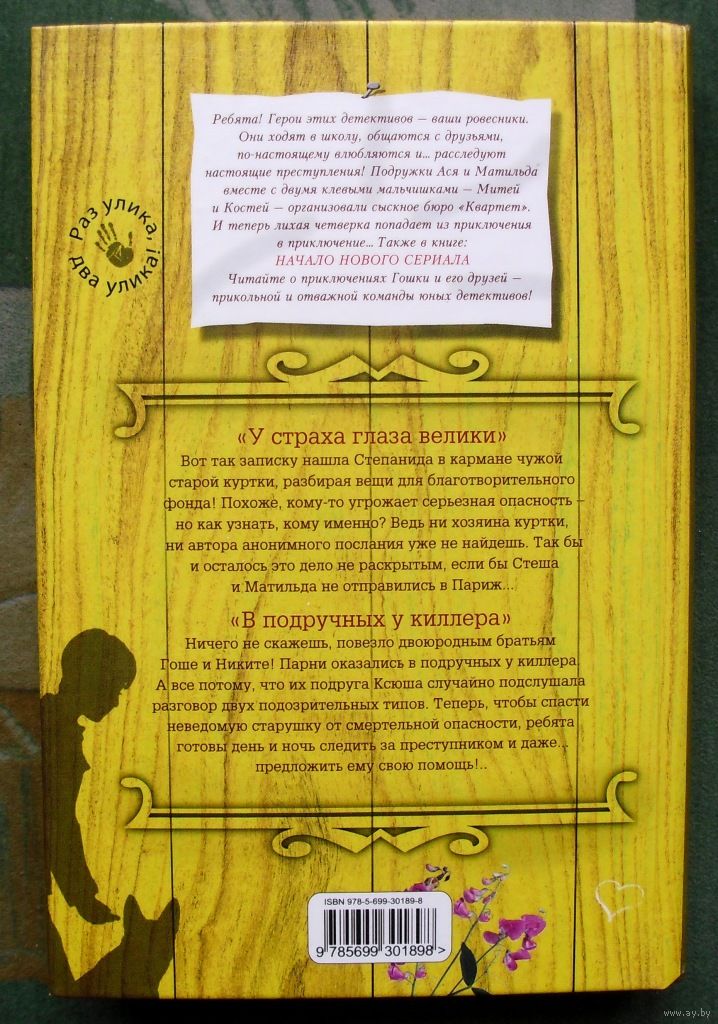 Ребята! Герои этих детективов – ваши ровесники.
Они ходят в школу, общаются с друзьями,
по-настоящему влюбляются и... расследуют
настоящие преступления! Подружки Ася и Матильда
вместе с двумя клевыми мальчишками – Митей
и Костей – организовали сыскное бюро «Квартет».
И теперь лихая четверка попадает из приключения
в приключение... Также в книге:
НАЧАЛО НОВОГО СЕРИАЛА
Читайте о приключениях Гошки и его друзей –
прикольной и отважной команды юных детективов!
Раз улика,
два улика!
«У страха глаза велики»
Вот так записку нашла Степанида в кармане чужой
старой куртки, разбирая вещи для благотворительного
фонда! Похоже, кому-то угрожает серьезная опасность –
но как узнать, кому именно? Ведь ни хозяина куртки,
ни автора анонимного послания уже не найдешь. Так бы
и осталось это дело не раскрытым, если бы Стеша
и Матильда не отправились в Париж...
«В подручных у киллера»
Ничего не скажешь, повезло двоюродным братьям
Гоше и Никите! Парни оказались в подручных у киллера.
А все потому, что их подруга Ксюша случайно подслушала
разговор двух подозрительных типов. Теперь, чтобы спасти
неведомую старушку от смертельной опасности, ребята
готовы день и ночь следить за преступником и даже...
предложить ему свою помощь!..
ISBN 978-5-699-30189-8
9 785699 301898 >
www.ay.by